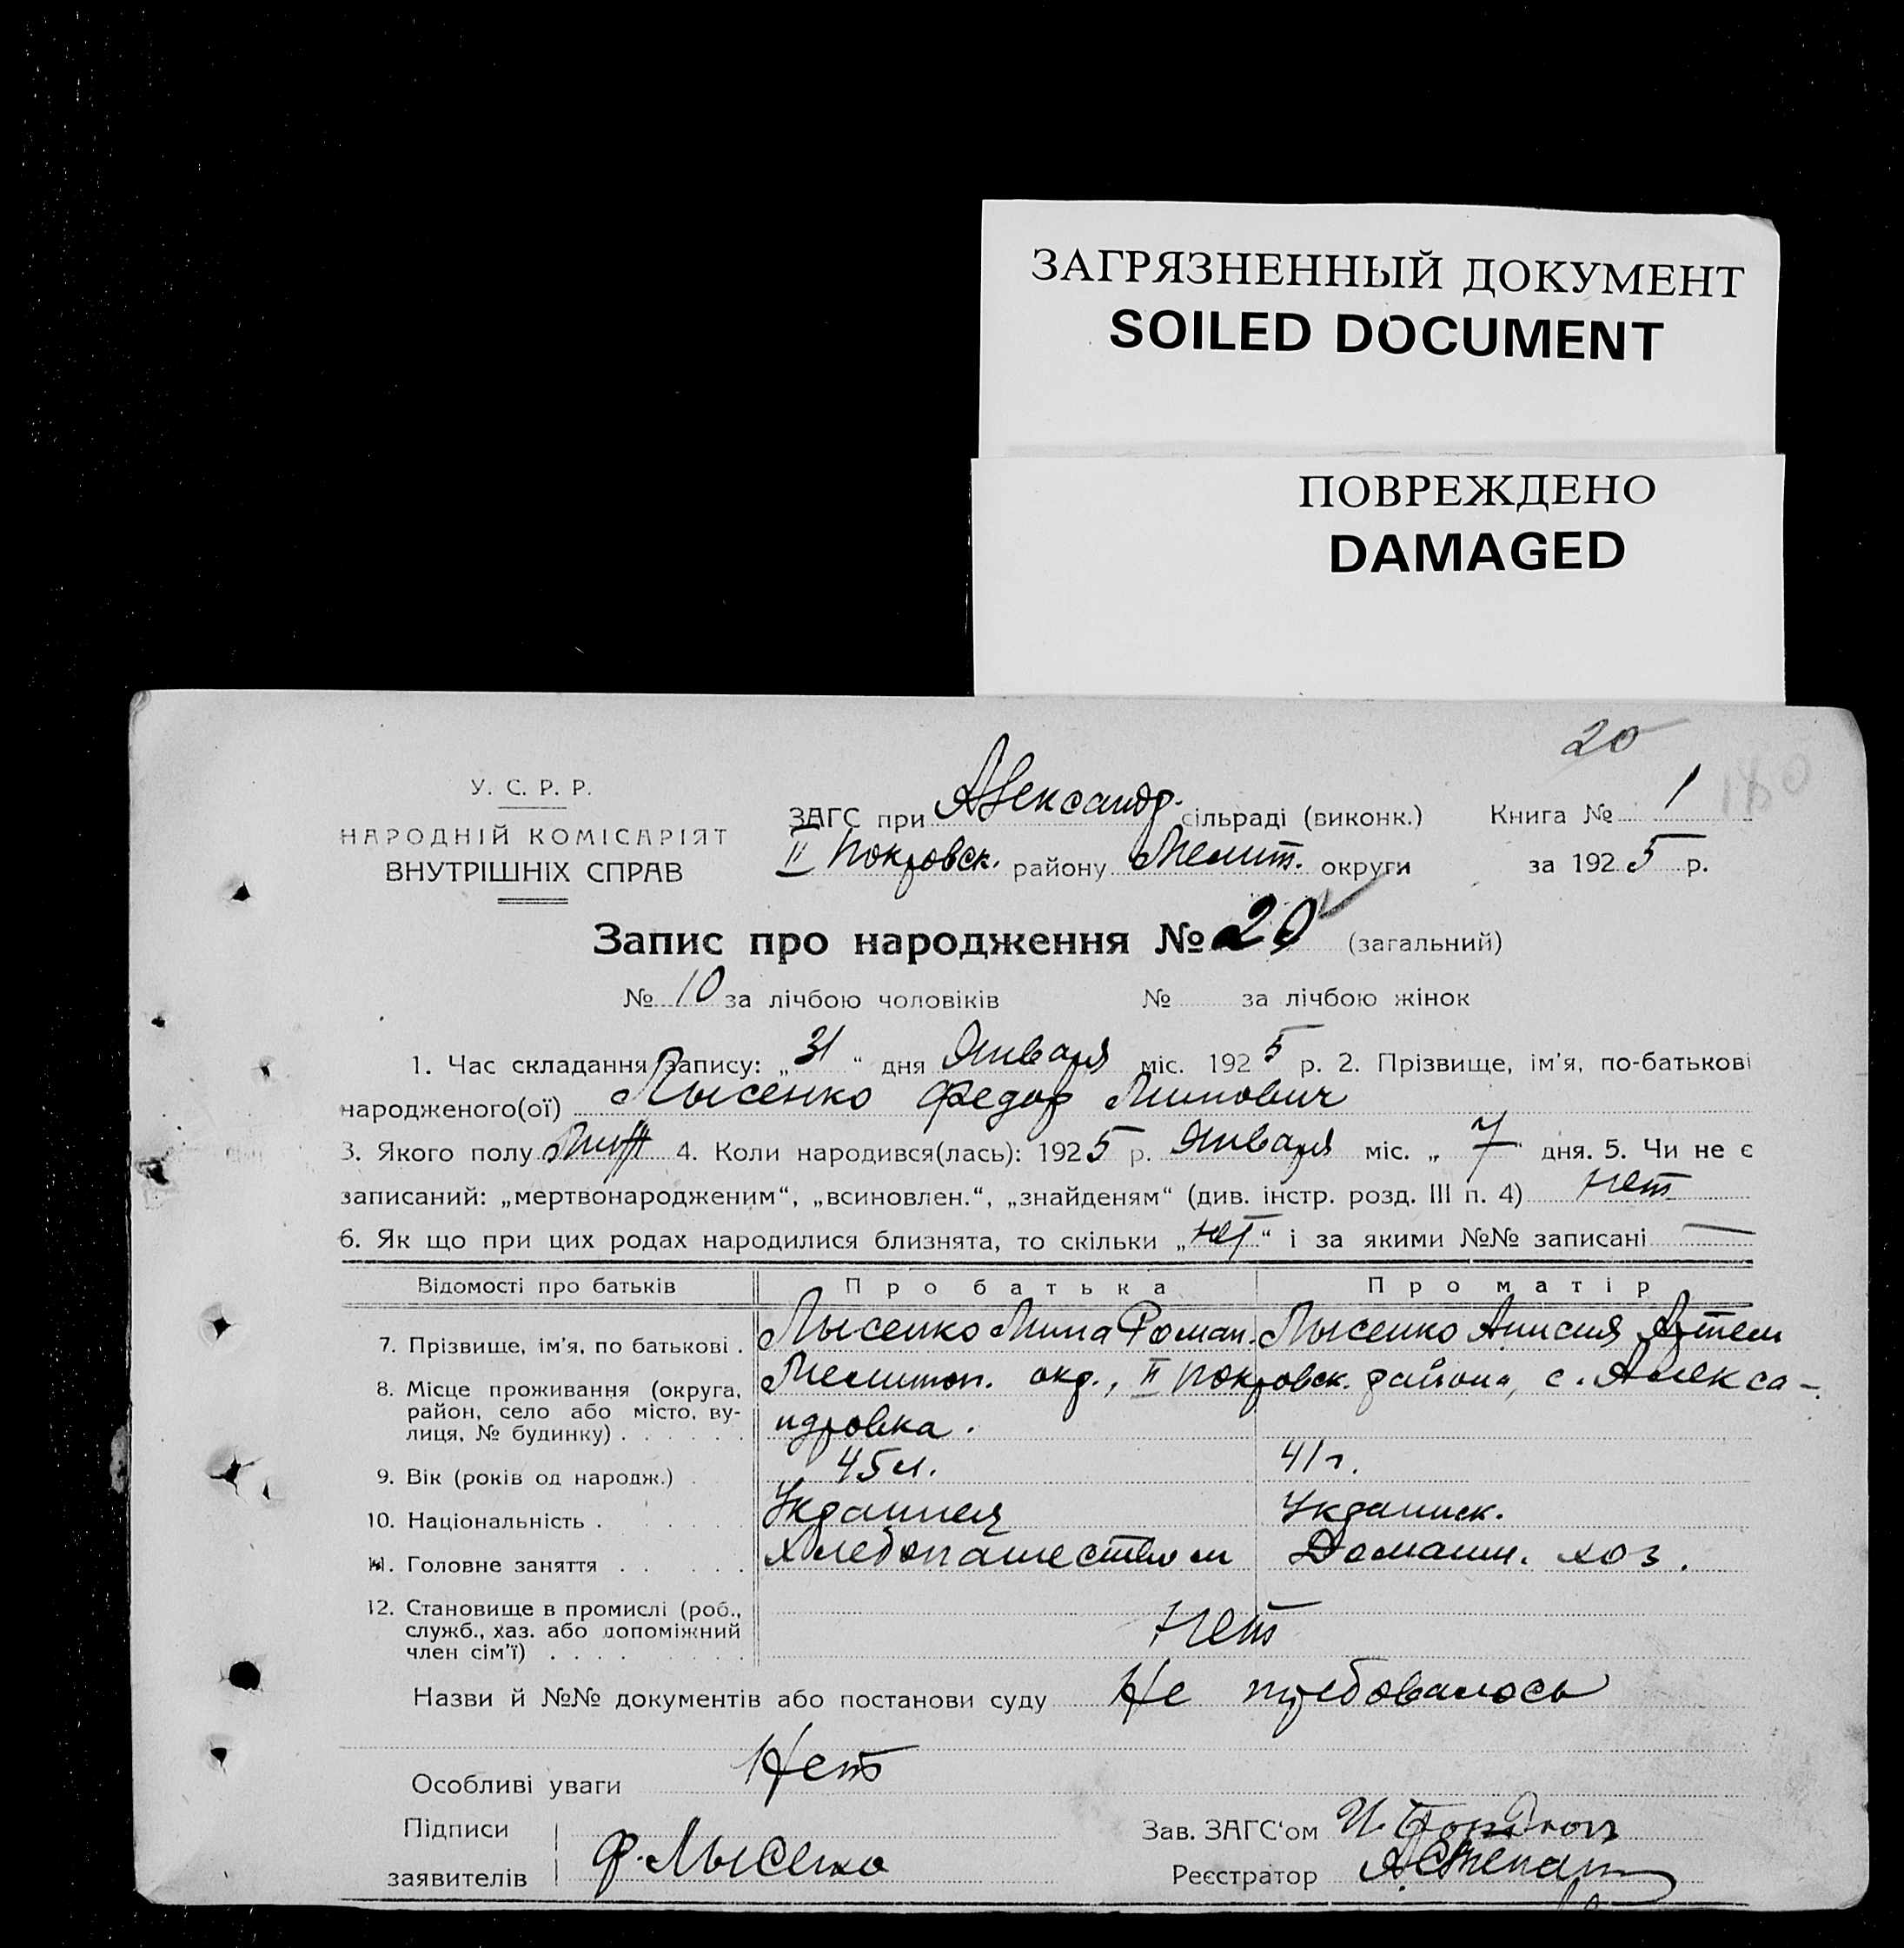 ЗАГРЯЗНЕННЫЙ ДОКУМЕНТ
SOILED DOCUMENT
ПОВРЕЖДЕНО
DAMAGED
20
У. С. Р. Р.
НАРОДНІЙ КОМІСАРІЯТ
ВНУТРІШНІХ СПРАВ
ЗАГС при Александр. сільраді (виконк.) Книга № 1
II Покровск. району Мелит. округи за 1925 р.
Запис про народження № 20 (загальний)
№ 10 за лічбою чоловіків № за лічбою жінок
1. Час складання запису: „31“ дня Января міс. 1925 р. 2. Прізвище, ім'я, по-батькові
народженого(ої) Лысенко Федор Минович
3. Якого полу Муж 4. Коли народився(лась): 1925 р. Января міс. „7 дня. 5. Чи не є
записаний: „мертвонародженим“, „всиновлен.“, „знайденям“ (див. інстр. розд. III п. 4) Нет
6. Як що при цих родах народилися близнята, то скільки „нет“ і за якими №№ записані —
Відомості про батьків Про батька Про матір
7. Прізвище, ім'я, по батькові . Лысенко Мина Роман. Лысенко Анисия Артем
8. Місце проживання (округа, район, село або місто, вулиця, № будинку) . Мелитоп. окр., II Покровск. района, с. Алекса-
ндровка.
9. Вік (років од народж.) 45 л. 41 г.
10. Національність . Украинец Украинск.
11. Головне заняття . . хлебопашеством Домашн. хоз.
12. Становище в промислі (роб., служб., хаз. або допоміжний член сім'ї) . Нет
Назви й №№ документів або постанови суду Не требовалось
Особливі уваги Нет
Підписи заявителів Ф. Лысенко
Зав. ЗАГС'ом И.
Реєстратор